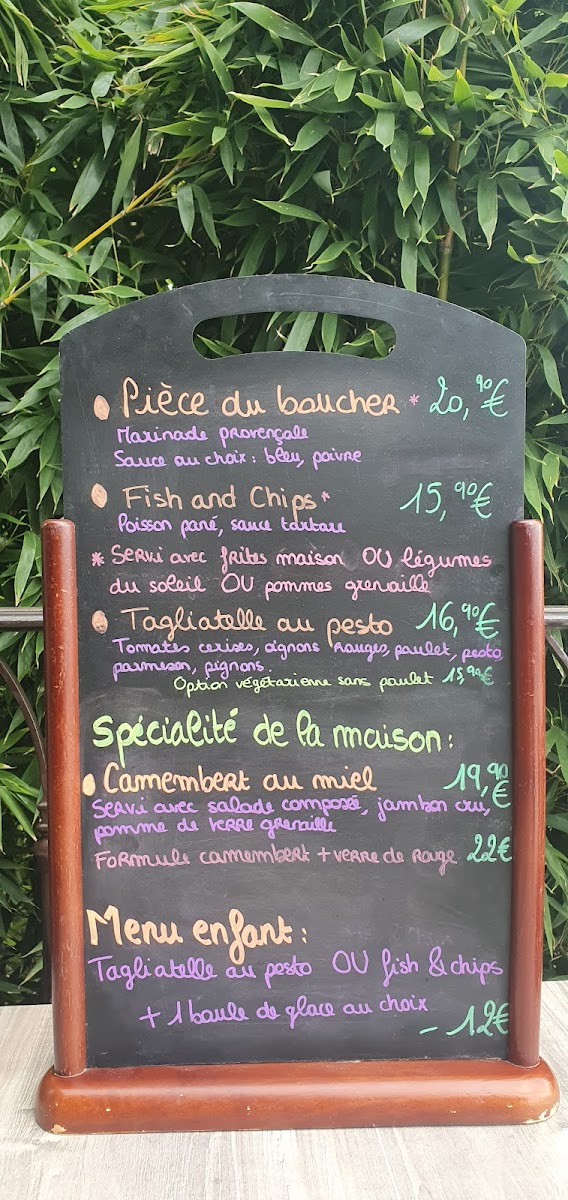 Pièce du boucher * 20,90€
Marinade provençale
Sauce au choix : bleu, poivre
Fish and Chips* 15,90€
Poisson pané, sauce tartare
* Servi avec frites maison OU légumes
du soleil OU pommes grenaille
Tagliatelle au pesto 16,90€
Tomates cerises, oignons rouges, poulet, pesto,
parmesan, pignons.
Option végétarienne sans poulet 15,90€
Spécialité de la maison :
Camembert au miel 19,90€
Servi avec salade composée, jambon cru,
pomme de terre grenaille
Formule camembert + verre de rouge 22€
Menu enfant :
Tagliatelle au pesto OU fish & chips
+ 1 boule de glace au choix
- 12€